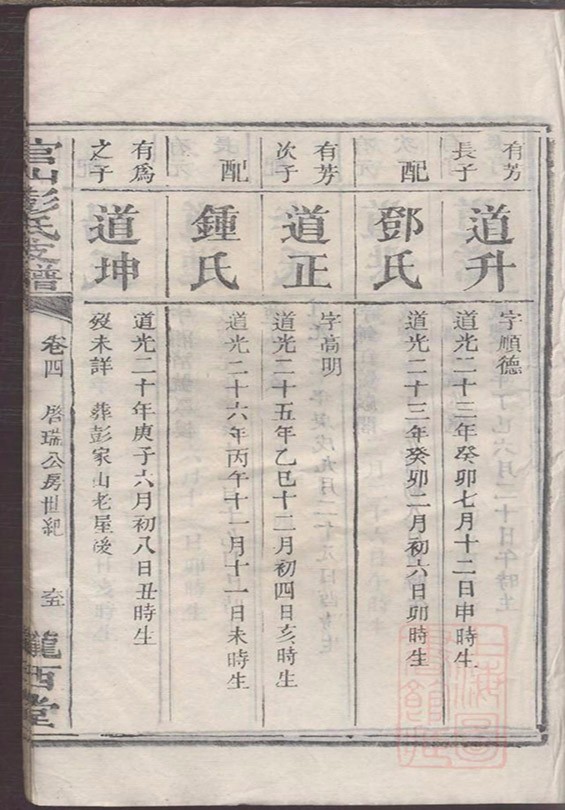 有芳
長子
道升
字順德
道光二十三年癸卯七月十二日申時生
配
鄧氏
道光二十三年癸卯二月初六日卯時生
有芳
次子
道正
字高明
道光二十五年乙巳十二月初四日亥時生
配
鍾氏
道光二十六年丙午十一月十一日未時生
有為
之子
道坤
道光二十年庚子六月初八日丑時生
歿未詳 葬彭家山老屋後
官山彭氏支譜
卷四 啓瑞公房世紀
隴西堂